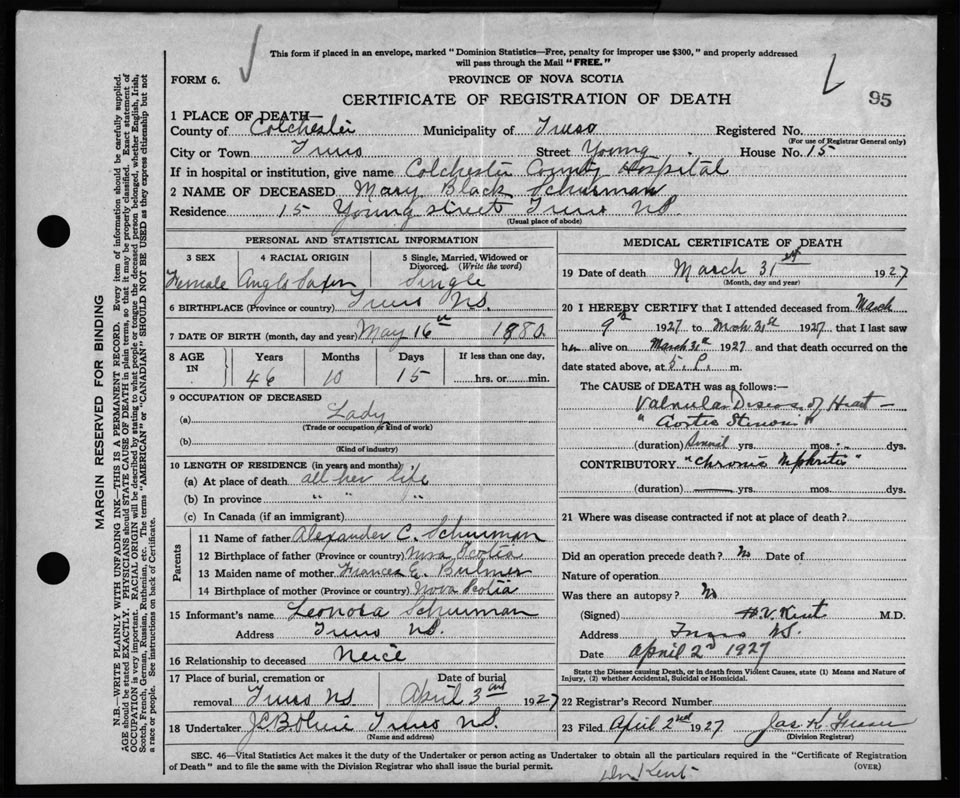 This form if placed in an envelope, marked "Dominion Statistics—Free, penalty for improper use $300," and properly addressed
will pass through the Mail "FREE."
FORM 6.
PROVINCE OF NOVA SCOTIA
CERTIFICATE OF REGISTRATION OF DEATH
95
1 PLACE OF DEATH—
County of Colchester Municipality of Truro Registered No.
(For use of Registrar General only)
City or Town Truro Street Young House No. 15
If in hospital or institution, give name Colchester County Hospital
2 NAME OF DECEASED Mary Black Schurman
Residence 15 Young street Truro N.S.
(Usual place of abode)
PERSONAL AND STATISTICAL INFORMATION
3 SEX 4 RACIAL ORIGIN 5 Single, Married, Widowed or Divorced. (Write the word)
Female Anglo Saxon Single
6 BIRTHPLACE (Province or country) Truro N.S.
7 DATE OF BIRTH (month, day and year) May 16th 1880
8 AGE IN Years Months Days If less than one day,
46 10 15 hrs. or min.
9 OCCUPATION OF DECEASED
(a) Lady
(Trade or occupation or kind of work)
(b)
(Kind of industry)
10 LENGTH OF RESIDENCE (in years and months)
(a) At place of death all her life
(b) In province " " "
(c) In Canada (if an immigrant)
Parents
11 Name of father Alexander C. Schurman
12 Birthplace of father (Province or country) Nova Scotia
13 Maiden name of mother Frances E. Bulmer
14 Birthplace of mother (Province or country) Nova Scotia
15 Informant's name Leonora Schurman
Address Truro N.S.
16 Relationship to deceased Neice
17 Place of burial, cremation or removal Truro N.S. Date of burial April 3rd 1927
18 Undertaker Truro N.S.
(Name and address)
MEDICAL CERTIFICATE OF DEATH
19 Date of death March 31st 1927
(Month, day and year)
20 I HEREBY CERTIFY that I attended deceased from March
9th 1927 to Mch 31st 1927 that I last saw
her alive on March 31st 1927 and that death occurred on the
date stated above, at 5. P. m.
The CAUSE OF DEATH was as follows:—
Valvular Diseas of Heart —
"Aortic Stenosis"
(duration) yrs. mos. dys.
CONTRIBUTORY "Chronic Nephritis"
(duration) yrs. mos. dys.
21 Where was disease contracted if not at place of death?
Did an operation precede death? No Date of
Nature of operation
Was there an autopsy? No
(Signed) H.V. Kent M.D.
Address Truro N.S.
Date April 2nd 1927
State the Disease causing Death, or in death from Violent Causes, state (1) Means and Nature of
Injury, (2) whether Accidental, Suicidal or Homicidal.
22 Registrar's Record Number
23 Filed April 2nd 1927 Jas. K.
(Division Registrar)
SEC. 46—Vital Statistics Act makes it the duty of the Undertaker or person acting as Undertaker to obtain all the particulars required in the "Certificate of Registration
of Death" and to file the same with the Division Registrar who shall issue the burial permit.
(OVER)
Dr. Kent
MARGIN RESERVED FOR BINDING
N.B.—WRITE PLAINLY WITH UNFADING INK—THIS IS A PERMANENT RECORD. Every item of information should be carefully supplied.
AGE should be stated EXACTLY. PHYSICIANS should STATE CAUSE OF DEATH in plain terms, so that it may be properly classified. Exact statement of
OCCUPATION is very important. RACIAL ORIGIN will be described by stating to what people or tongue the deceased person belonged, whether English, Irish,
Scotch, French, German, Russian, Ruthenian, etc. The terms "AMERICAN" or "CANADIAN" SHOULD NOT BE USED as they express citizenship but not
a race or people. See instructions on back of Certificate.